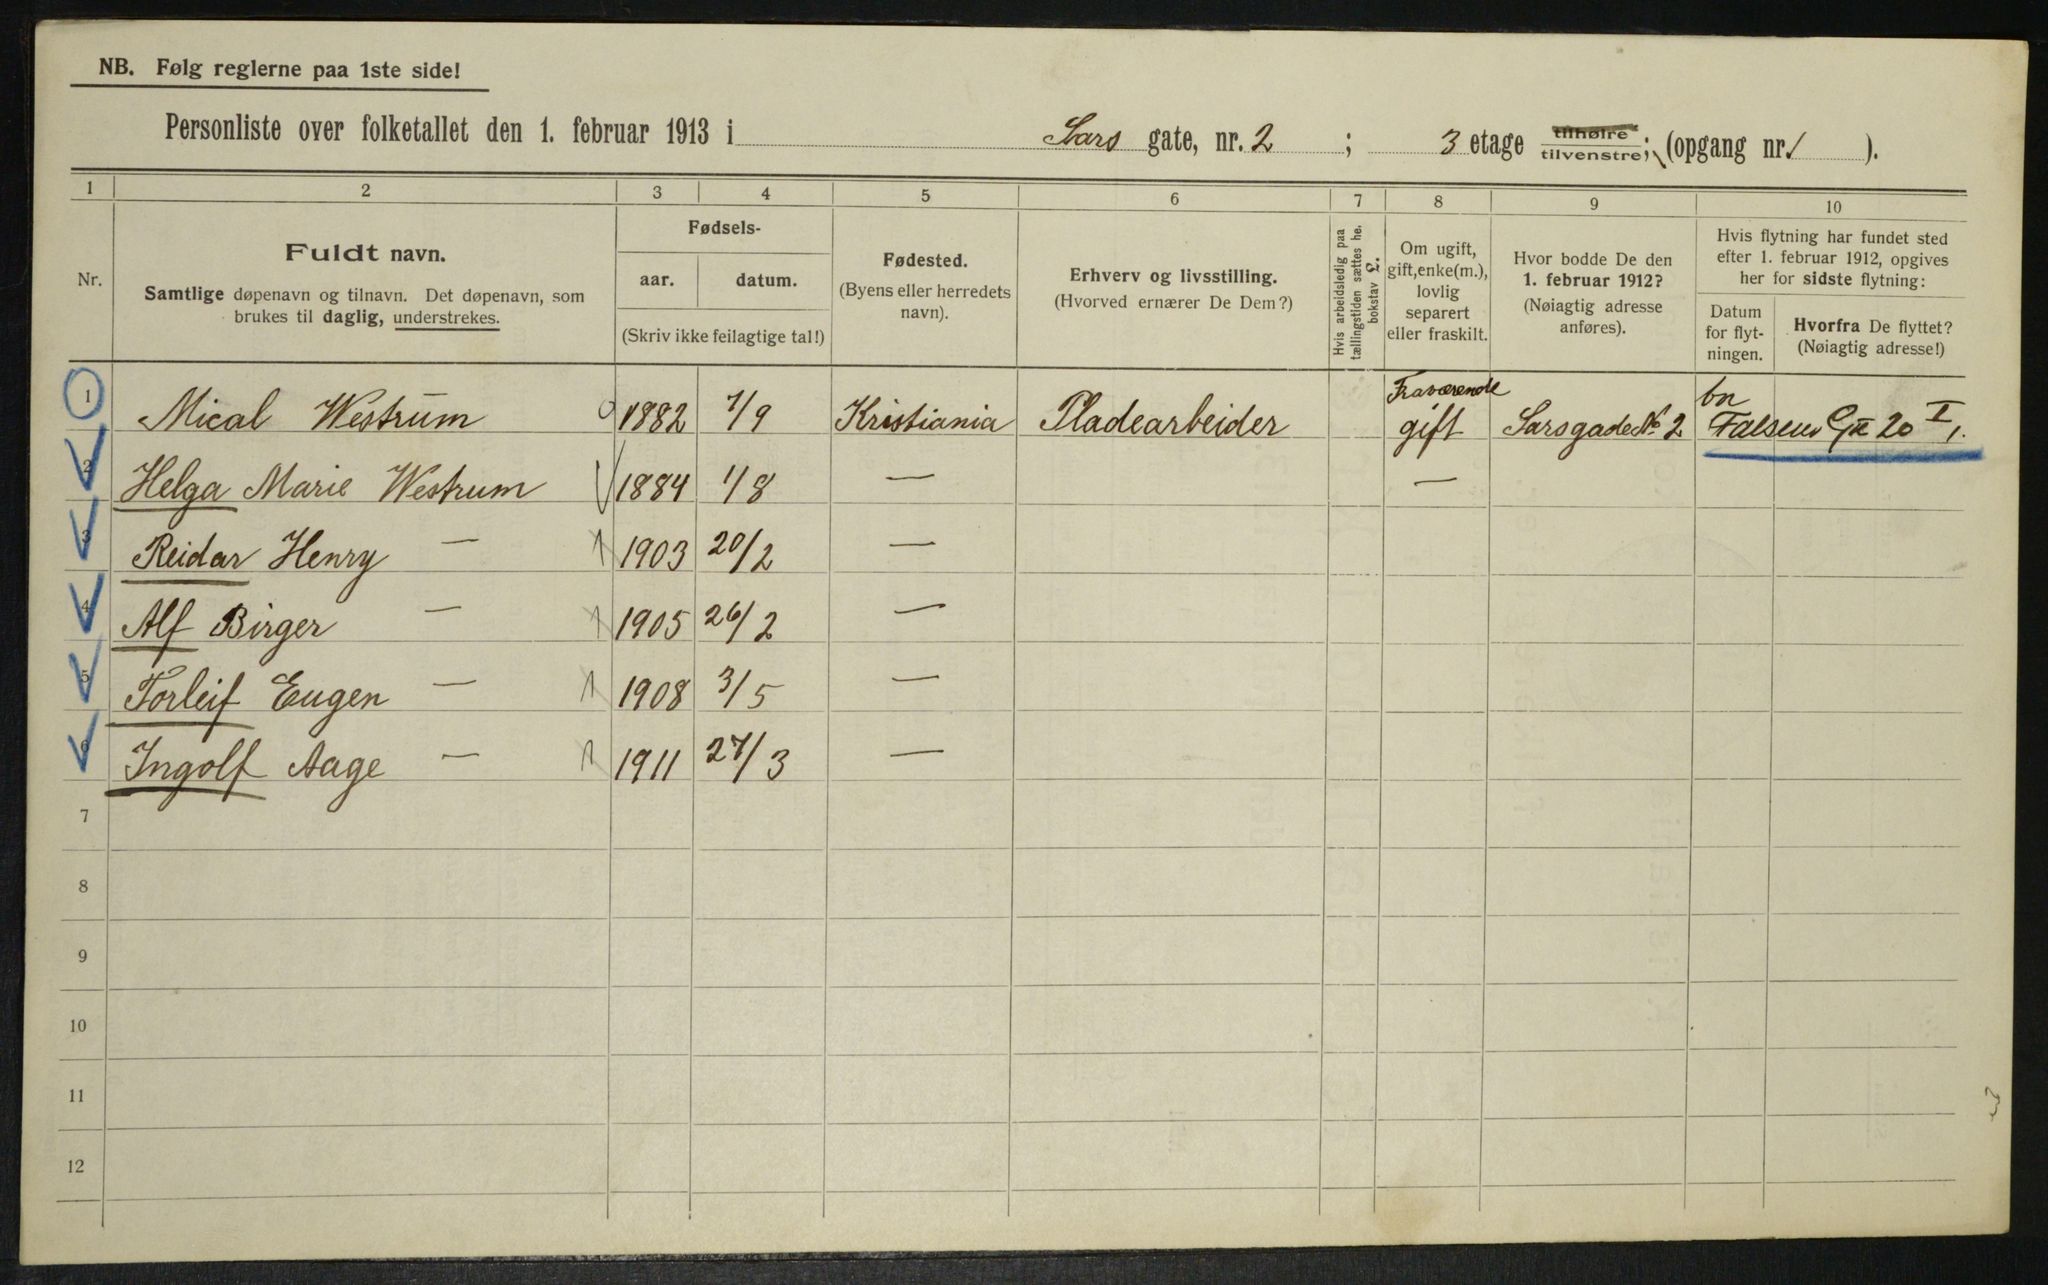 NB. Følg reglerne paa 1ste side!
Personliste over folketallet den 1. februar 1913 i Sars gate, nr. 2 ; 3 etage tilhøire tilvenstre; (opgang nr. 1 ).
1 2 3 4 5 6 7 8 9 10
Nr.
Fuldt navn.
Samtlige døpenavn og tilnavn. Det døpenavn, som
brukes til daglig, understrekes.
Fødsels-
aar. datum.
(Skriv ikke feilagtige tal!)
Fødested.
(Byens eller herredets
navn).
Erhverv og livsstilling.
(Hvorved ernærer De Dem?)
Hvis arbeidsledig paa
tællingstiden sættes he.
bokstav L.
Om ugift,
gift, enke(m.),
lovlig
separert
eller fraskilt.
Hvor bodde De den
1. februar 1912?
(Nøiagtig adresse
anføres).
Hvis flytning har fundet sted
efter 1. februar 1912, opgives
her for sidste flytning:
Datum
for flyt-
ningen.
Hvorfra De flyttet?
(Nøiagtig adresse!)
Fraværende bn
1 Mical Westrum 1882 7/9 Kristiania Pladearbeider gift Sarsgade No 2 Falsens Gt 20 I 1.
2 Helga Marie Westrum 1884 1/8 — —
3 Reidar Henry — 1903 20/2 —
4 Alf Birger — 1905 26/2 —
5 Torleif Eugen — 1908 3/5 —
6 Ingolf Aage — 1911 27/3 —
7
8
9
10
11
12